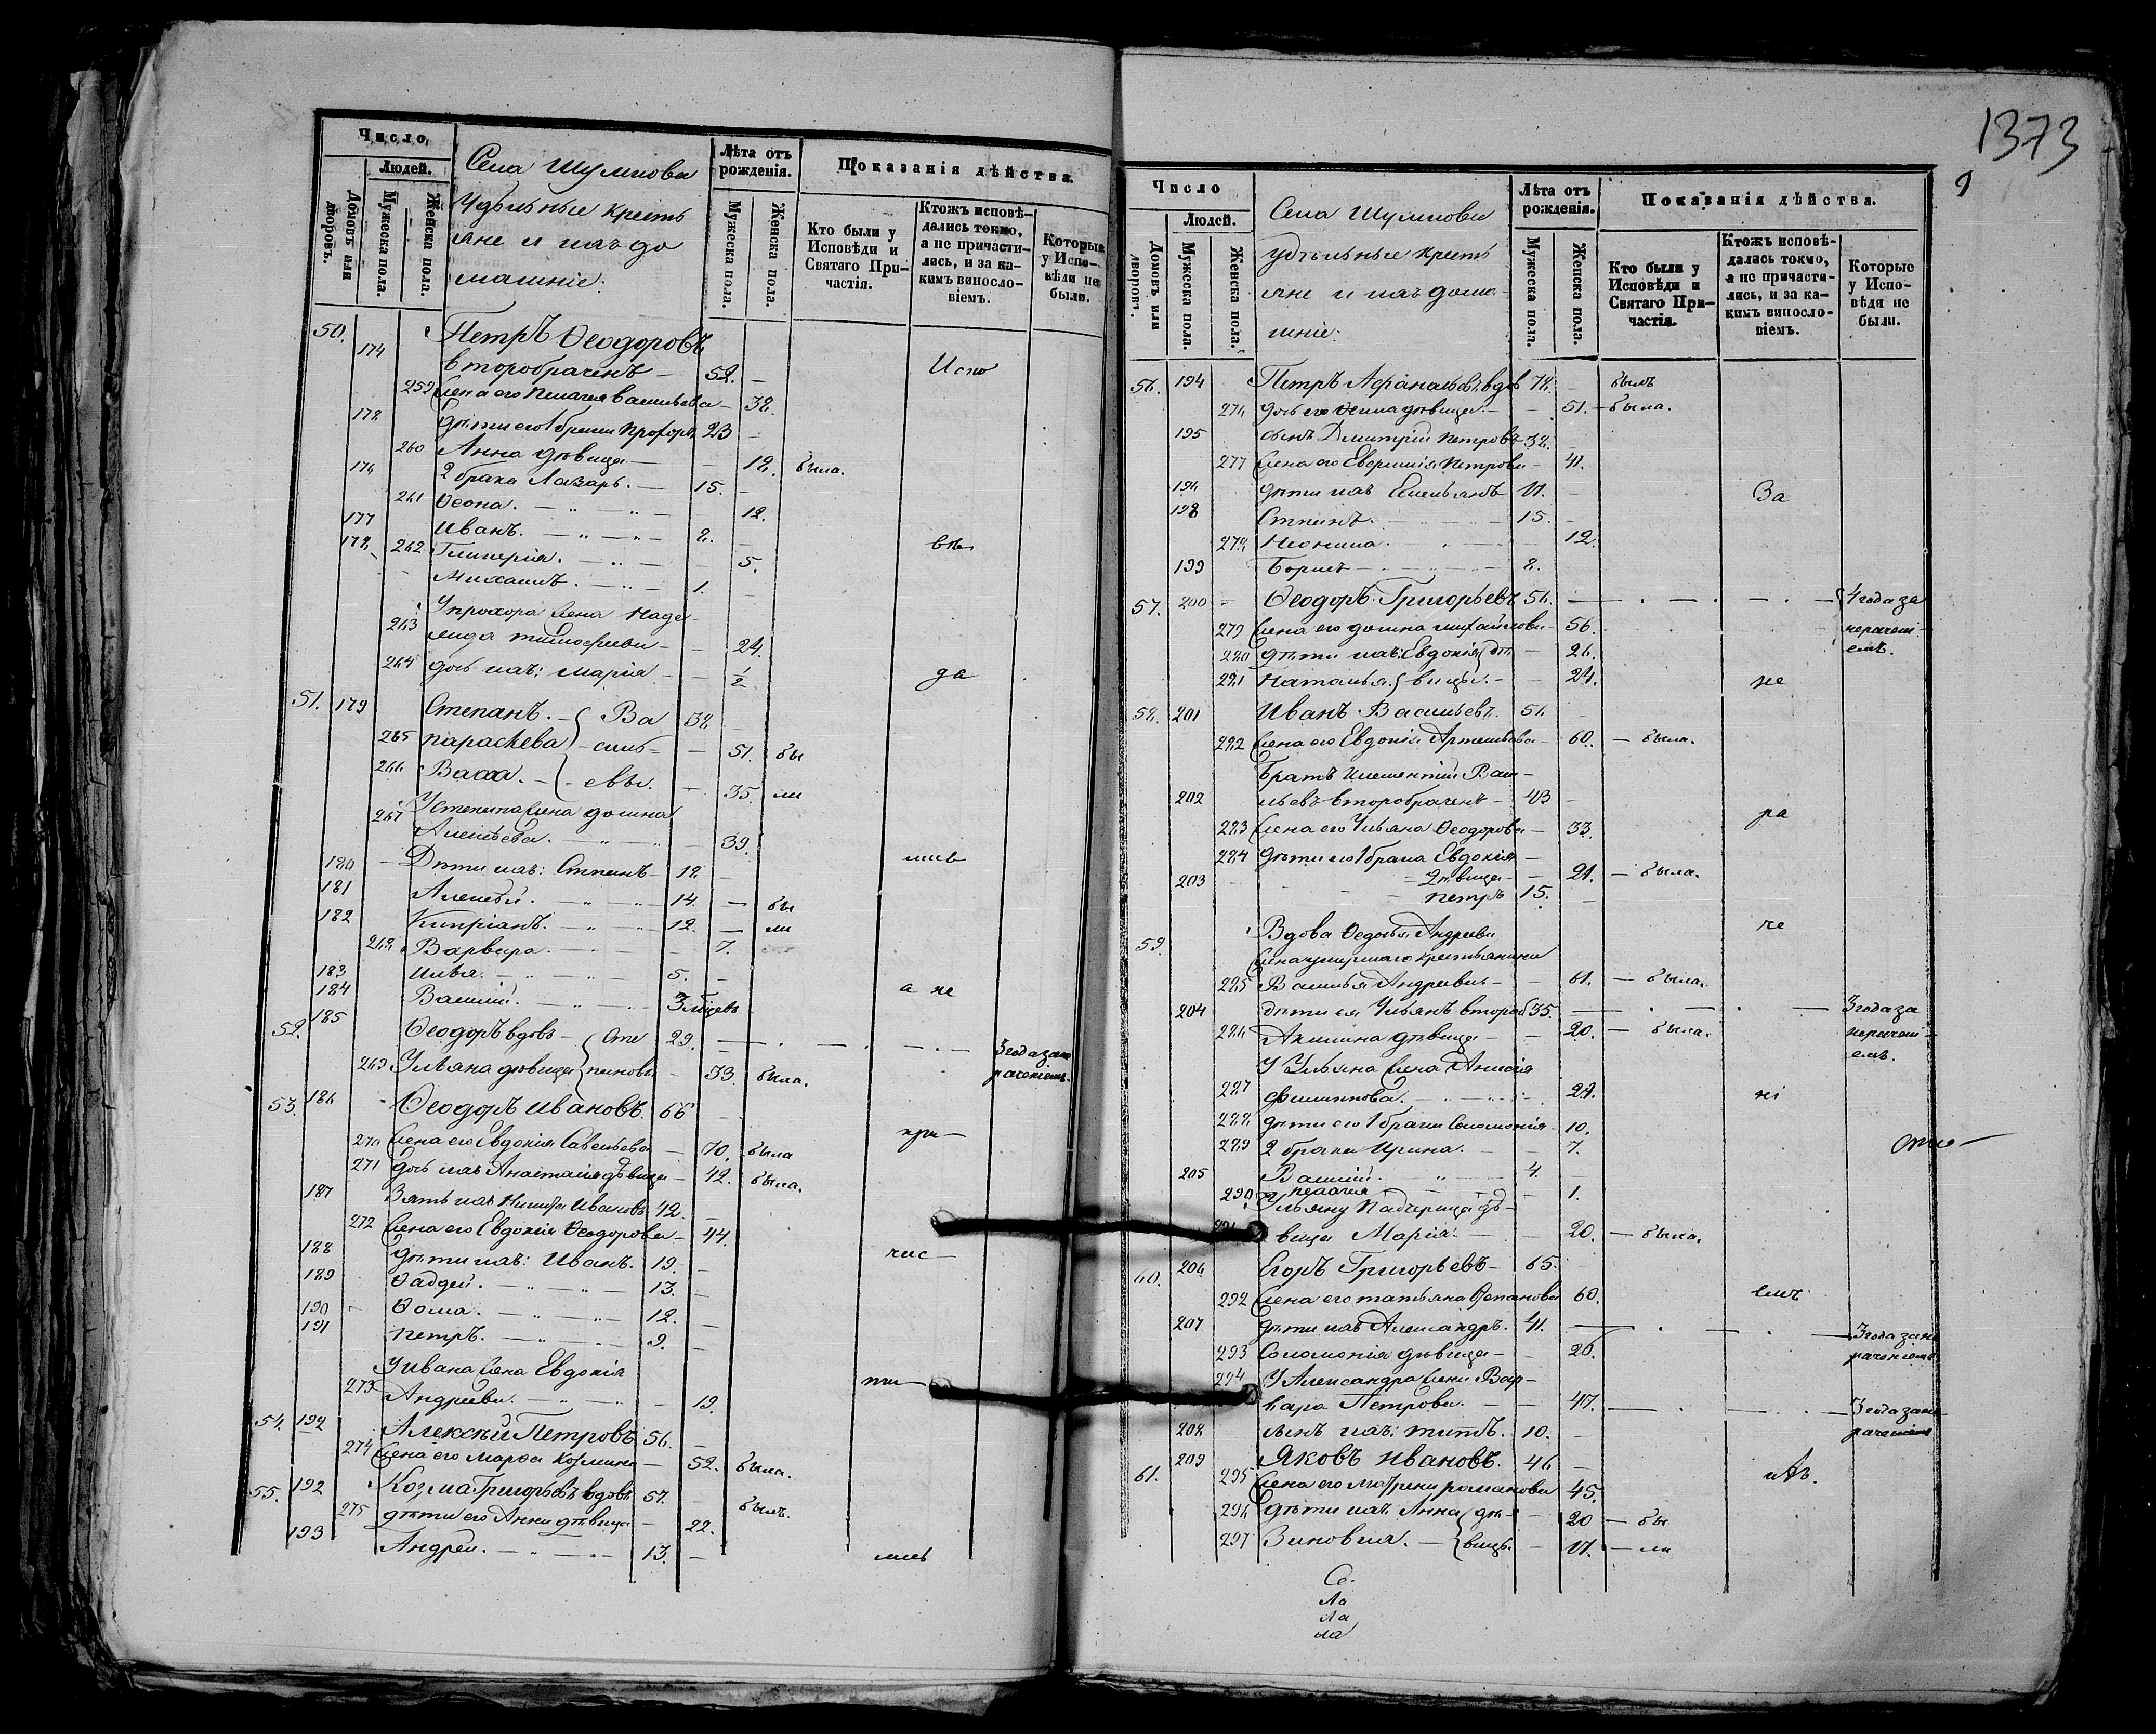 Число
Людей.
Домовъ или дворовъ.
Мужеска пола.
Женска пола.
Села Шумнова
Удѣльные кресть
яне и ихъ до
машніе:
Лѣта отъ рожденія.
Мужеска пола.
Женска пола.
Показанія дѣйства.
Кто были у Исповѣди и Святаго При-частія.
Ктожъ исповѣ-дались токмо, а не причасти-лись, и за ка-кимъ виносло-віемъ.
Которые у Испо-вѣди не были.
50. Петръ Ѳеодоровъ
174 второбраченъ — 52. — Испо
259 Жена его Пелагея Васильева — 38.
Дѣти его 1 брака Прохоръ 23 —
260 Анна дѣвица — — 18. была.
176 2 брака Лазарь. — 15. —
261 Ѳеона. — „ — „ — 12.
177 Иванъ. — „ — „ — 8. — вѣ
178. 262 Гликерія. — „ — 5.
Михаилъ. — „ — 1. —
У Прохора жена Наде
263 жда Тимофеева — — 24.
264 дочь ихъ: Марія — — 1/2 да
51. 179 Степанъ. — Ва 38. —
265 Параскева — силь — — 51. бы
266 Васса. — евы. — 35. ли
У Степана жена Домна
267 Алексѣева. — „ — „ — 39.
180 — Дѣти ихъ: Степанъ — 18. — лись
181 Алексѣй. — „ — 14. — бы
182 Кипріанъ. — „ — 12. — ли
268. Варвара. — „ — — 7.
183 Илья. — „ — „ — 5. —
184 Василій. — „ — 3 мѣсяцевъ а не
52. 185 Ѳеодоръ вдовъ — Сте 29. — 3 года за не
269 Ульяна дѣвица пановы — 33. была. раченіемъ.
53. 186 Ѳеодоръ Ивановъ. 66 —
270 Жена его Евдокія Савельева — 70. была при —
271 Дочь ихъ Анастасія дѣвица — 42. была.
187 Зять ихъ Никифоръ Ивановъ 42. —
272 Жена его Евдокія Ѳеодорова — 44.
188 Дѣти ихъ: Иванъ. 19. — час —
189 Ѳаддей. — „ — 13. —
190 Ѳома. — „ — 12. —
191 Петръ. — „ — 9. —
У Ивана жена Евдокія
273 Андреева. — „ — — 19. ти —
54. 192 Алексѣй Петровъ 56. —
274 Жена его Марѳа Козмина — 52. была.
55. 192 Козма Григорьевъ вдовъ 57. — былъ.
275 дѣти его Анна дѣвица — 22.
193 Андрей. — „ — 13. — лись
1373
9
Число
Людей.
Домовъ или дворовъ.
Мужеска пола.
Женска пола.
Села Шумнова
удѣльные кресть
яне и ихъ дома
шніе:
Лѣта отъ рожденія.
Мужеска пола.
Женска пола.
Показанія дѣйства.
Кто были у Исповѣди и Святаго При-частія.
Ктожъ исповѣ-дались токмо, а не причасти-лись, и за ка-кимъ виносло-віемъ.
Которые у Испо-вѣди не были.
56. 194 Петръ Аѳанасьевъ вдов 78. — былъ
276 дочь его дѣвица. — — 51. — была.
195 сынъ Дмитрій Петровъ 38. —
277 Жена его Петрова — 41.
196 дѣти ихъ Емельянъ 17. — За
198 Степанъ. — 15. —
278 Неонила. — 12.
199 Борисъ — 8.
57. 200 — Ѳеодоръ Григорьевъ 56. — 4 года за
279 Жена его Домна Михайлова — 56. нерачені
280 дѣти ихъ: Евдокія дѣ — 26. емъ.
281 Наталья. вицы. — — 24. не
58. 201 Иванъ Васильевъ. 56 —
282 Жена его Евдокія Артемьева — 60. — была.
Братъ Климентій Васи —
202 льевъ второбраченъ — 43 — ра
283 Жена его Ульяна Ѳеодорова — 33.
284 дѣти его 1 брака Евдокія —
дѣвица — — 21. — была.
203 Петръ 15. —
59. Вдова Ѳедосья Андреева че
Жена умершаго крестьянина
285 Василья Андреева — — 61. — была.
204 дѣти ея Ульянъ втораб 35. — 3 года за
286 Акилина дѣвица — — 20. — была. нерачені
У Ульяна жена Анисія емъ.
287 Филиппова. — — 28. ні
288 дѣти его 1 брака Соломонія — 10.
289 2 брака Ирина. — — 7. отл —
205 Василій. — 4. —
290 Пелагія — — 1.
Ульяну падчерица дѣ —
291 вица Марія. — — 20. — была.
60. 206 Егоръ Григорьевъ — 65. —
292 Жена его Татьяна Степанова 60. емъ
207 дѣти ихъ Александръ. 41. — 3 года за не
293 Соломонія дѣвица — — 26. раченіемъ
294 У Александра жена Вар —
вара Петрова. — — 47. — 3 года за не
208 сынъ ихъ: Титъ. 10. — раченіемъ
61. 209 Яковъ Ивановъ. 46 — ихъ.
295 Жена его Матрена Романова 45.
296 дѣти ихъ Анна дѣ — — 20 — бы
297 Зиновія. — вицы. — 17. — ли
Со.
Ла
ла
ла